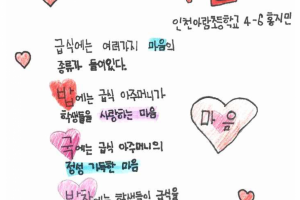 인천아람초등학교 4-6 홍지민
급식에는 여러가지 마음의
종류가 들어있다.
밥에는 급식 아주머니가
학생들을 사랑하는 마음
국에는 급식 아주머니의
정성 가득한 마음
마음
반찬에는 학생들이 급식을